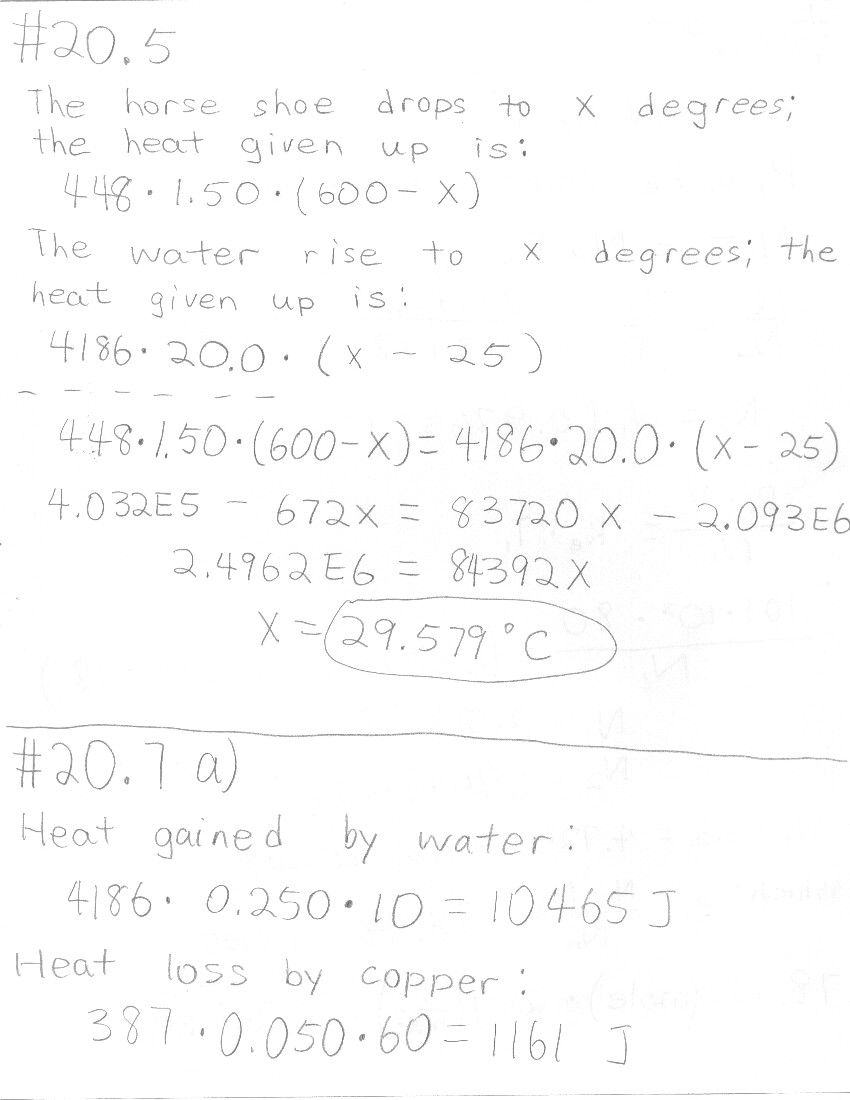 #20.5
The horse shoe drops to x degrees;
the heat given up is:
448 · 1.50 · (600 - x)
The water rise to x degrees; the
heat given up is:
4186 · 20.0 · (x - 25)
448 · 1.50 · (600 - x) = 4186 · 20.0 · (x - 25)
4.032E5 - 672x = 83720x - 2.093E6
2.4962E6 = 84392x
x = 29.579 °C
#20.7 a)
Heat gained by water:
4186 · 0.250 · 10 = 10465 J
Heat loss by copper:
387 · 0.050 · 60 = 1161 J